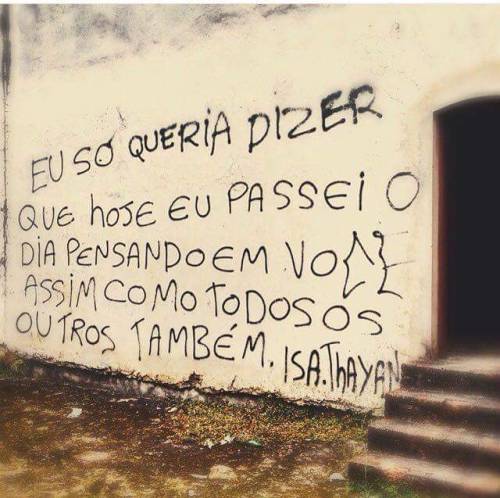 EU SÓ QUERIA DIZER
QUE hOJE EU PASSEI O
DIA PENSANDO EM VOCÊ
ASSIM COMO TODOS OS
OUTROS TAMBÉM. ISA.ThAYAN